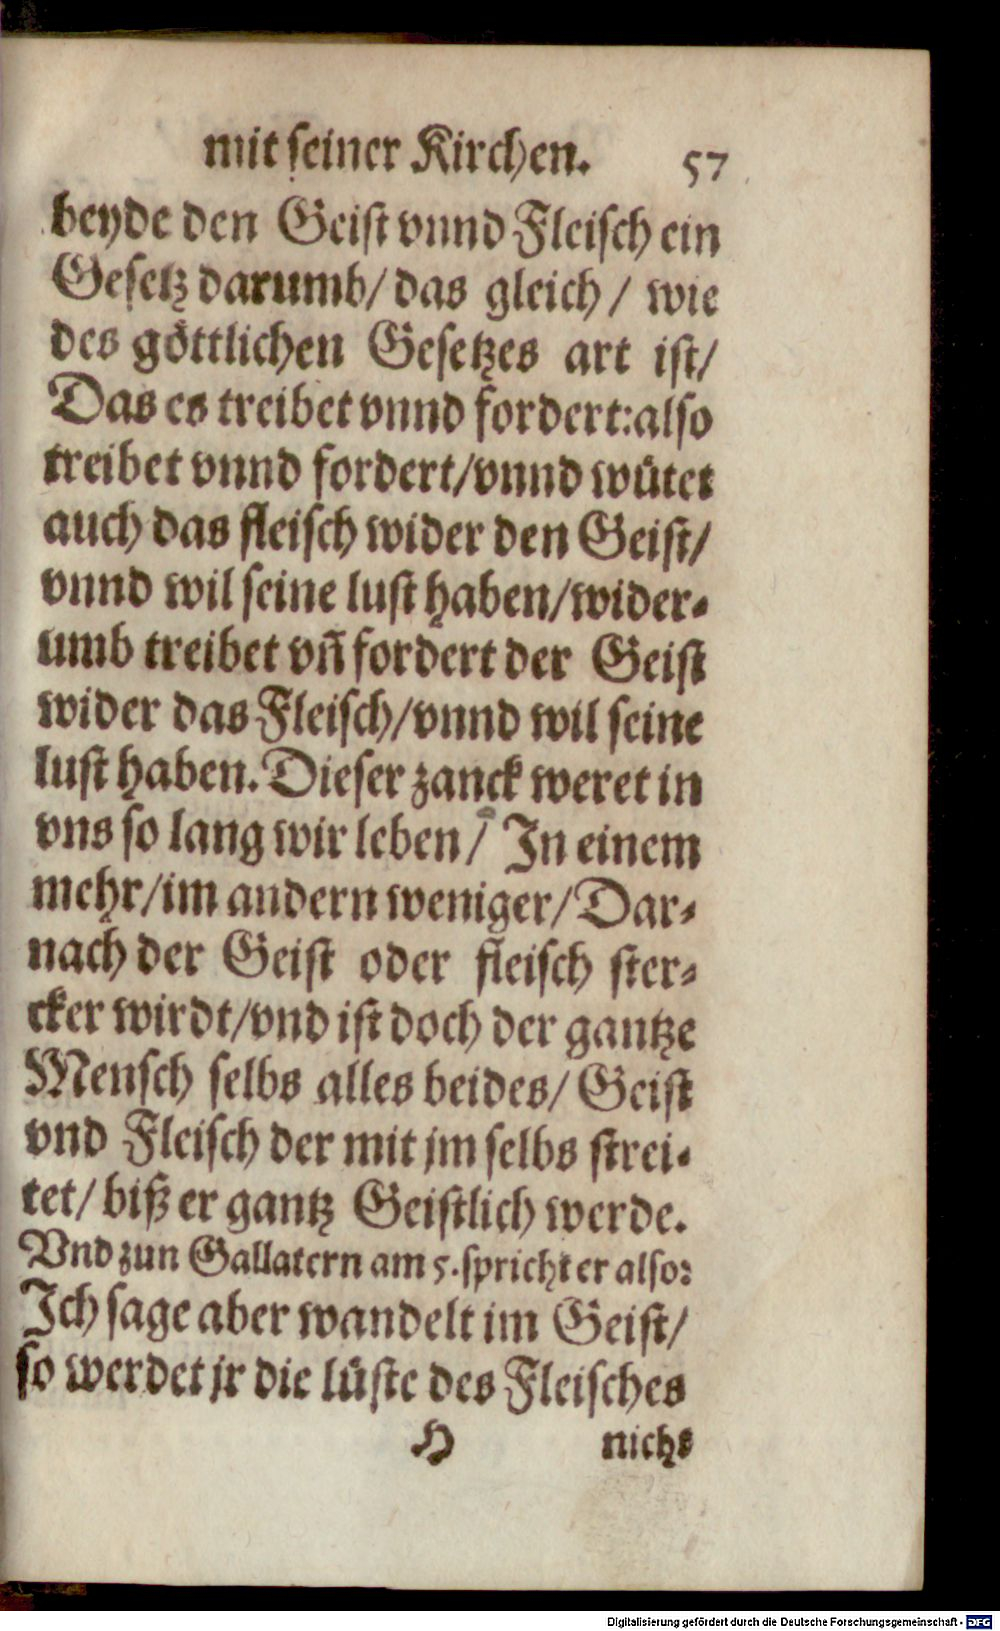 mit seiner Kirchen. 57
beyde den Geist vnnd Fleisch ein
Gesetz darumb/ das gleich / wie
des göttlichen Gesetzes art ist/
Das es treibet vnnd fordert: also
treibet vnnd fordert/vnnd wütet
auch das fleisch wider den Geist/
vnnd wil seine lust haben/wider-
umb treibet vñ fordert der Geist
wider das Fleisch/vnnd wil seine
lust haben. Dieser zanck weret in
vns so lang wir leben/ In einem
mehr/im andern weniger/ Dar-
nach der Geist oder fleisch ster-
cker wirdt/vnd ist doch der gantze
Mensch selbs alles beides/ Geist
vnd Fleisch der mit jm selbs strei-
tet/ biß er gantz Geistlich werde.
Vnd zun Gallatern am 5. spricht er also:
Ich sage aber wandelt im Geist/
so werdet jr die lüste des Fleisches
H nichs
Digitalisierung gefördert durch die Deutsche Forschungsgemeinschaft - DFG